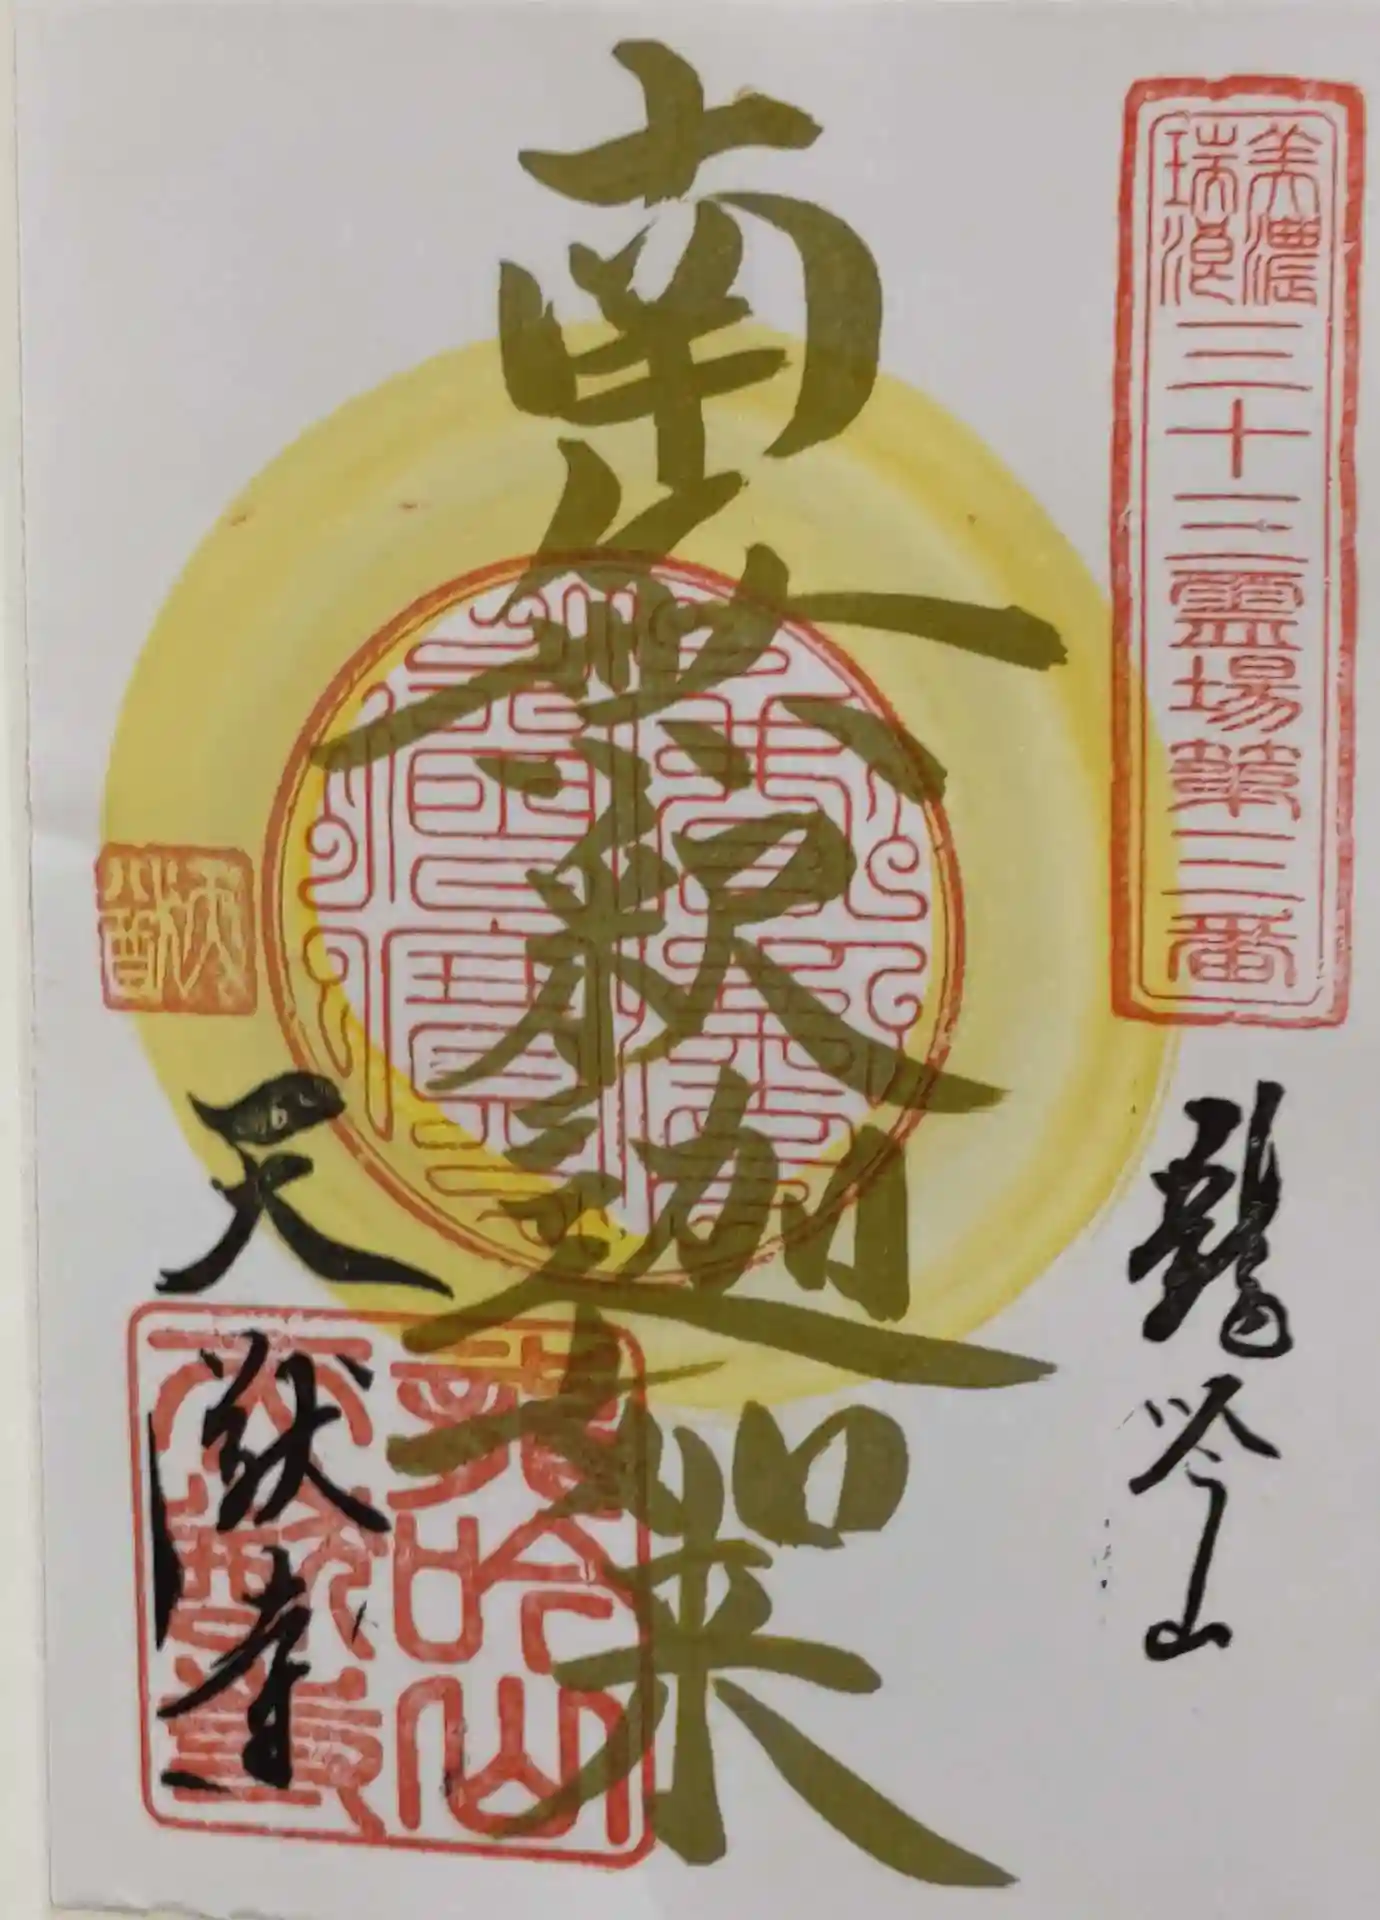 美濃
瑞浪
三十三靈場第三番
龍吟山
南無釈迦如来
天猷寺
龍吟山
天猷寺